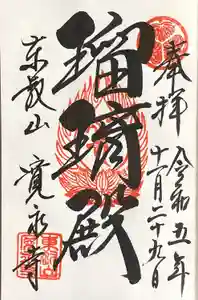 奉拝
令和五年
十一月二十九日
瑠璃殿
東叡山
寛永寺